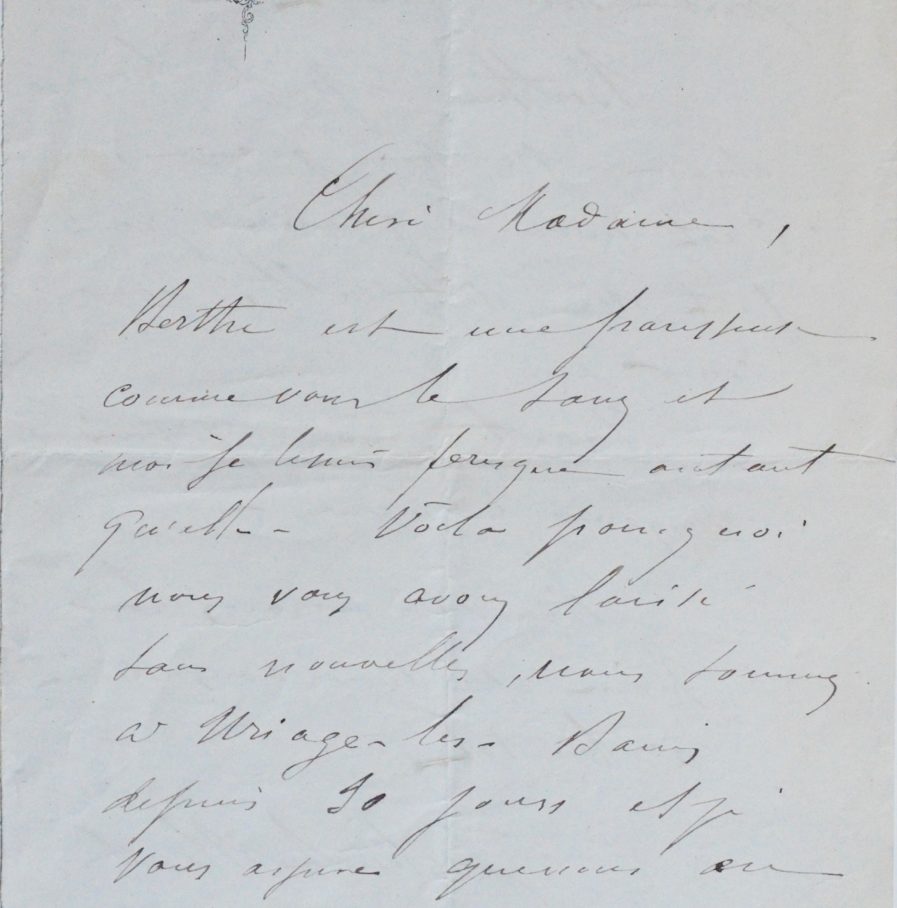 Chere Madame,
Berthe est une paresseuse
comme vous le savez et
moi je le suis presque autant
qu'elle - Voila pourquoi
nous vous avons laissé
sans nouvelles, nous sommes
a Uriage-les-Bains
depuis jours et je
vous assure que nous en